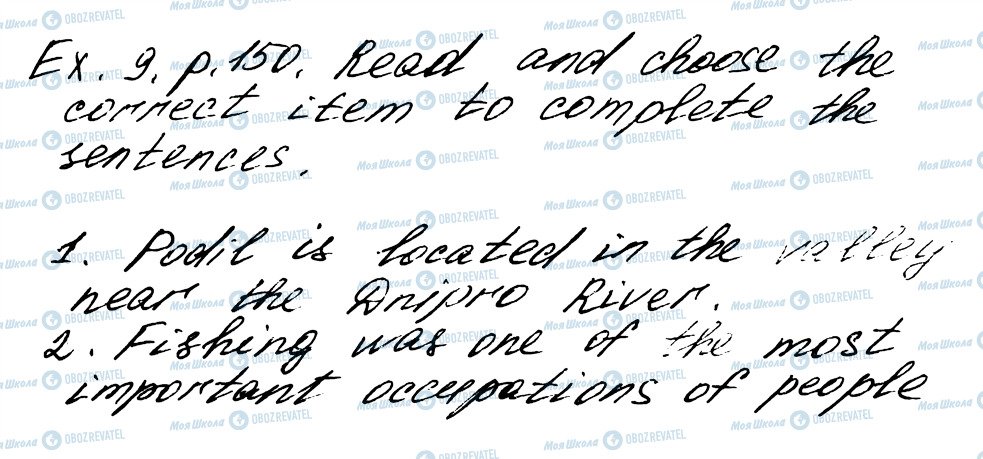 Ex. 9, p. 150. Read and choose the
correct item to complete the
sentences.
1. Podil is located in the valley
near the Dnipro River.
2. Fishing was one of the most
important occupations of people